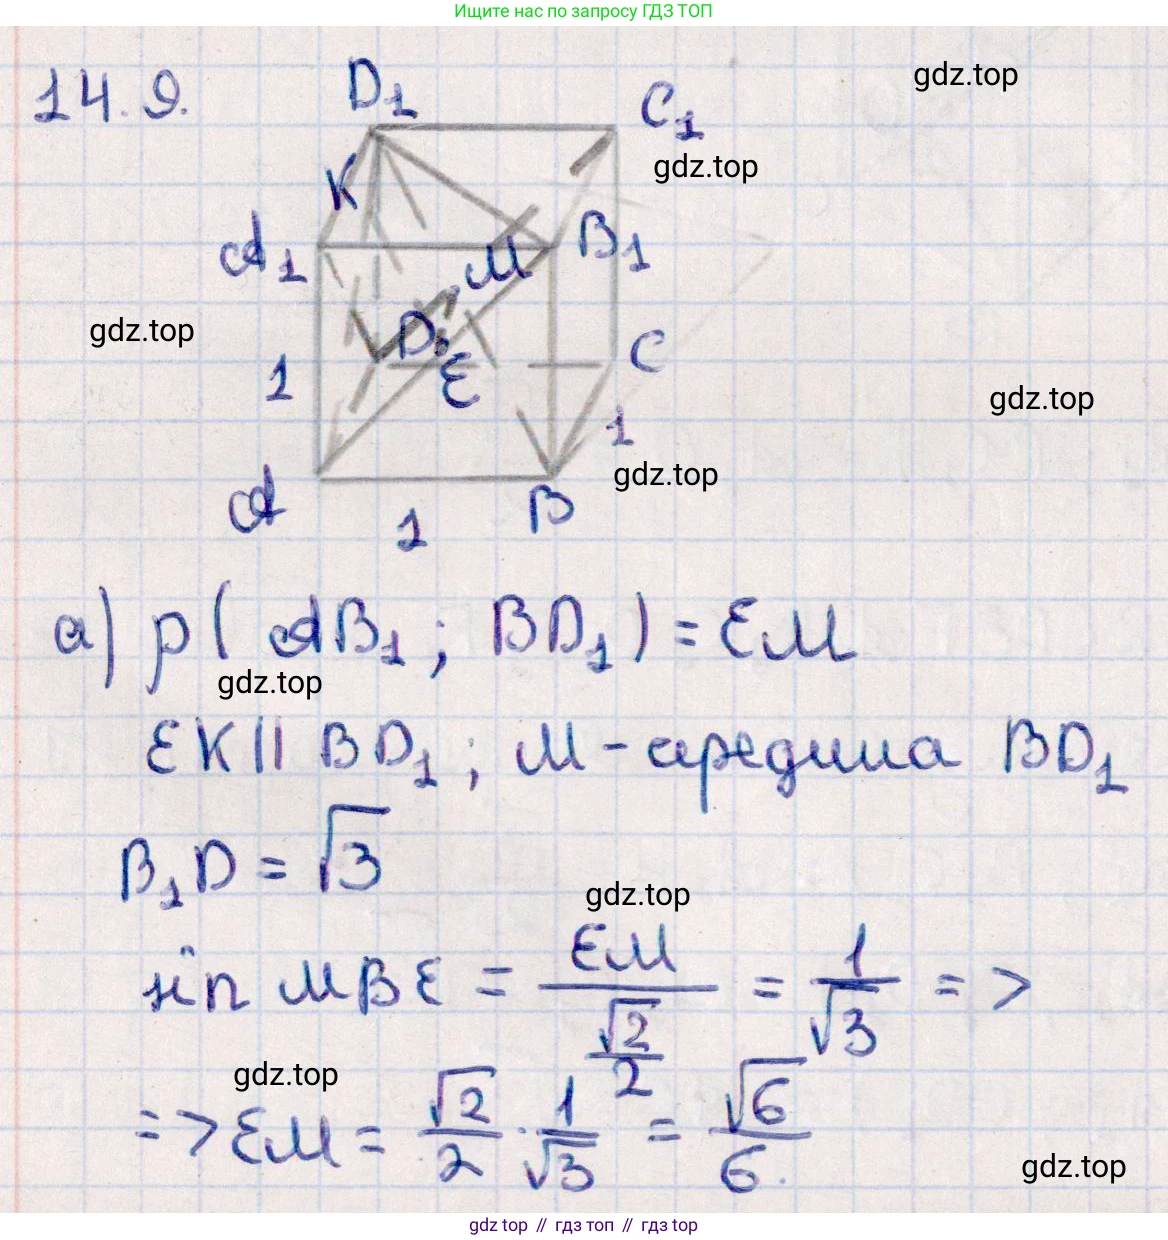 Ищите нас по запросу ГДЗ ТОП
14.9.
D₁
C₁
gdz.top
gdz.top
K
A₁
B₁
M
gdz.top
D
E
C
1
gdz.top
1
gdz.top
A
B
1
а) ρ( AB₁; BD₁) = EM
gdz.top
EK || BD₁; M - середина BD₁
B₁D = √3
gdz.top
sin MBE = EM / (√2/2) = 1/√3 =>
gdz.top
=> EM = √2/2 · 1/√3 = √6/6.
gdz.top
gdz top // гдз топ // гдз top